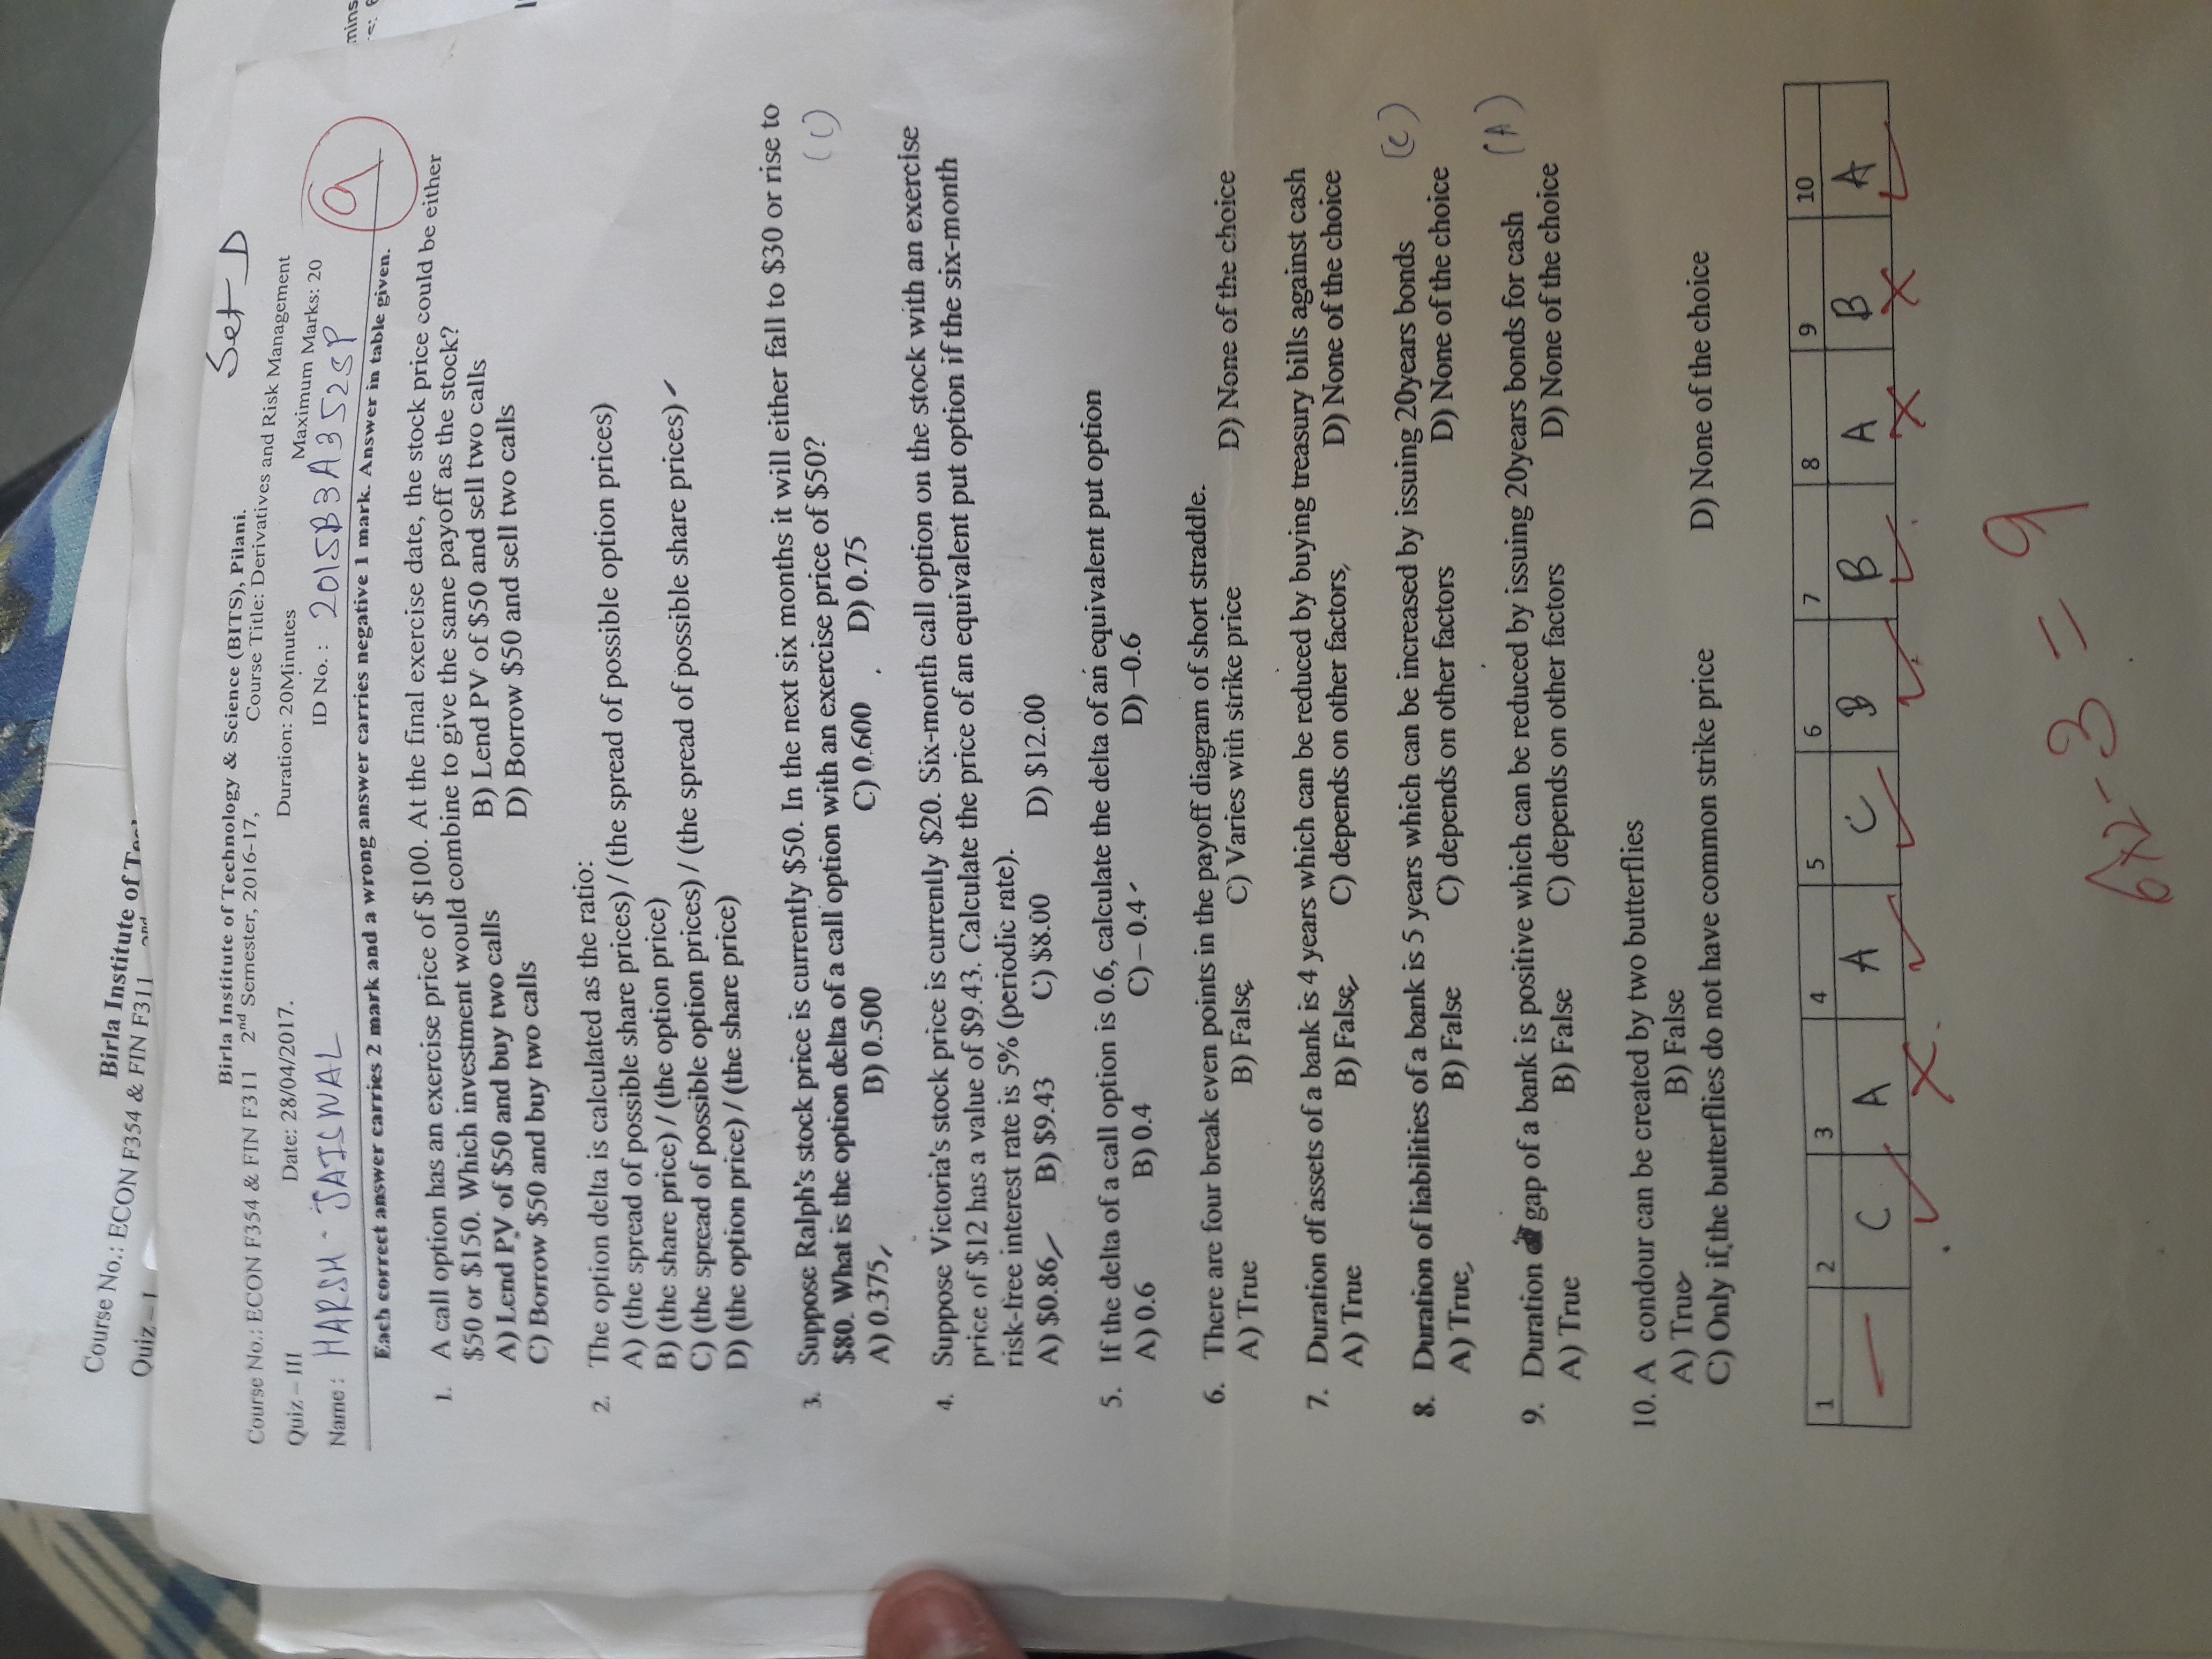 Course No.: ECON F354 & FIN F311
Birla Institute of
Quiz – I
Set D
Birla Institute of Technology & Science (BITS), Pilani.
Course No.: ECON F354 & FIN F311 2nd Semester, 2016-17, Course Title: Derivatives and Risk Management
Quiz – III Date: 28/04/2017. Duration: 20Minutes Maximum Marks: 20
Name : HARSH JAISWAL ID No. : 2015B3A3525P
9
mins
Each correct answer carries 2 mark and a wrong answer carries negative 1 mark. Answer in table given.
1. A call option has an exercise price of $100. At the final exercise date, the stock price could be either
$50 or $150. Which investment would combine to give the same payoff as the stock?
A) Lend PV of $50 and buy two calls B) Lend PV of $50 and sell two calls
C) Borrow $50 and buy two calls D) Borrow $50 and sell two calls
2. The option delta is calculated as the ratio:
A) (the spread of possible share prices) / (the spread of possible option prices)
B) (the share price) / (the option price)
C) (the spread of possible option prices) / (the spread of possible share prices)
D) (the option price) / (the share price)
3. Suppose Ralph's stock price is currently $50. In the next six months it will either fall to $30 or rise to
$80. What is the option delta of a call option with an exercise price of $50? (C)
A) 0.375 B) 0.500 C) 0.600 D) 0.75
4. Suppose Victoria's stock price is currently $20. Six-month call option on the stock with an exercise
price of $12 has a value of $9.43. Calculate the price of an equivalent put option if the six-month
risk-free interest rate is 5% (periodic rate).
A) $0.86 B) $9.43 C) $8.00 D) $12.00
5. If the delta of a call option is 0.6, calculate the delta of an equivalent put option
A) 0.6 B) 0.4 C) – 0.4 D) –0.6
6. There are four break even points in the payoff diagram of short straddle.
A) True B) False C) Varies with strike price D) None of the choice
7. Duration of assets of a bank is 4 years which can be reduced by buying treasury bills against cash
A) True B) False C) depends on other factors, D) None of the choice
8. Duration of liabilities of a bank is 5 years which can be increased by issuing 20years bonds (C)
A) True B) False C) depends on other factors D) None of the choice
9. Duration gap of a bank is positive which can be reduced by issuing 20years bonds for cash (A)
A) True B) False C) depends on other factors D) None of the choice
10. A condour can be created by two butterflies
A) True B) False
C) Only if the butterflies do not have common strike price D) None of the choice
1 2 3 4 5 6 7 8 9 10
— C A A C B B A B A
6x2-3 = 9